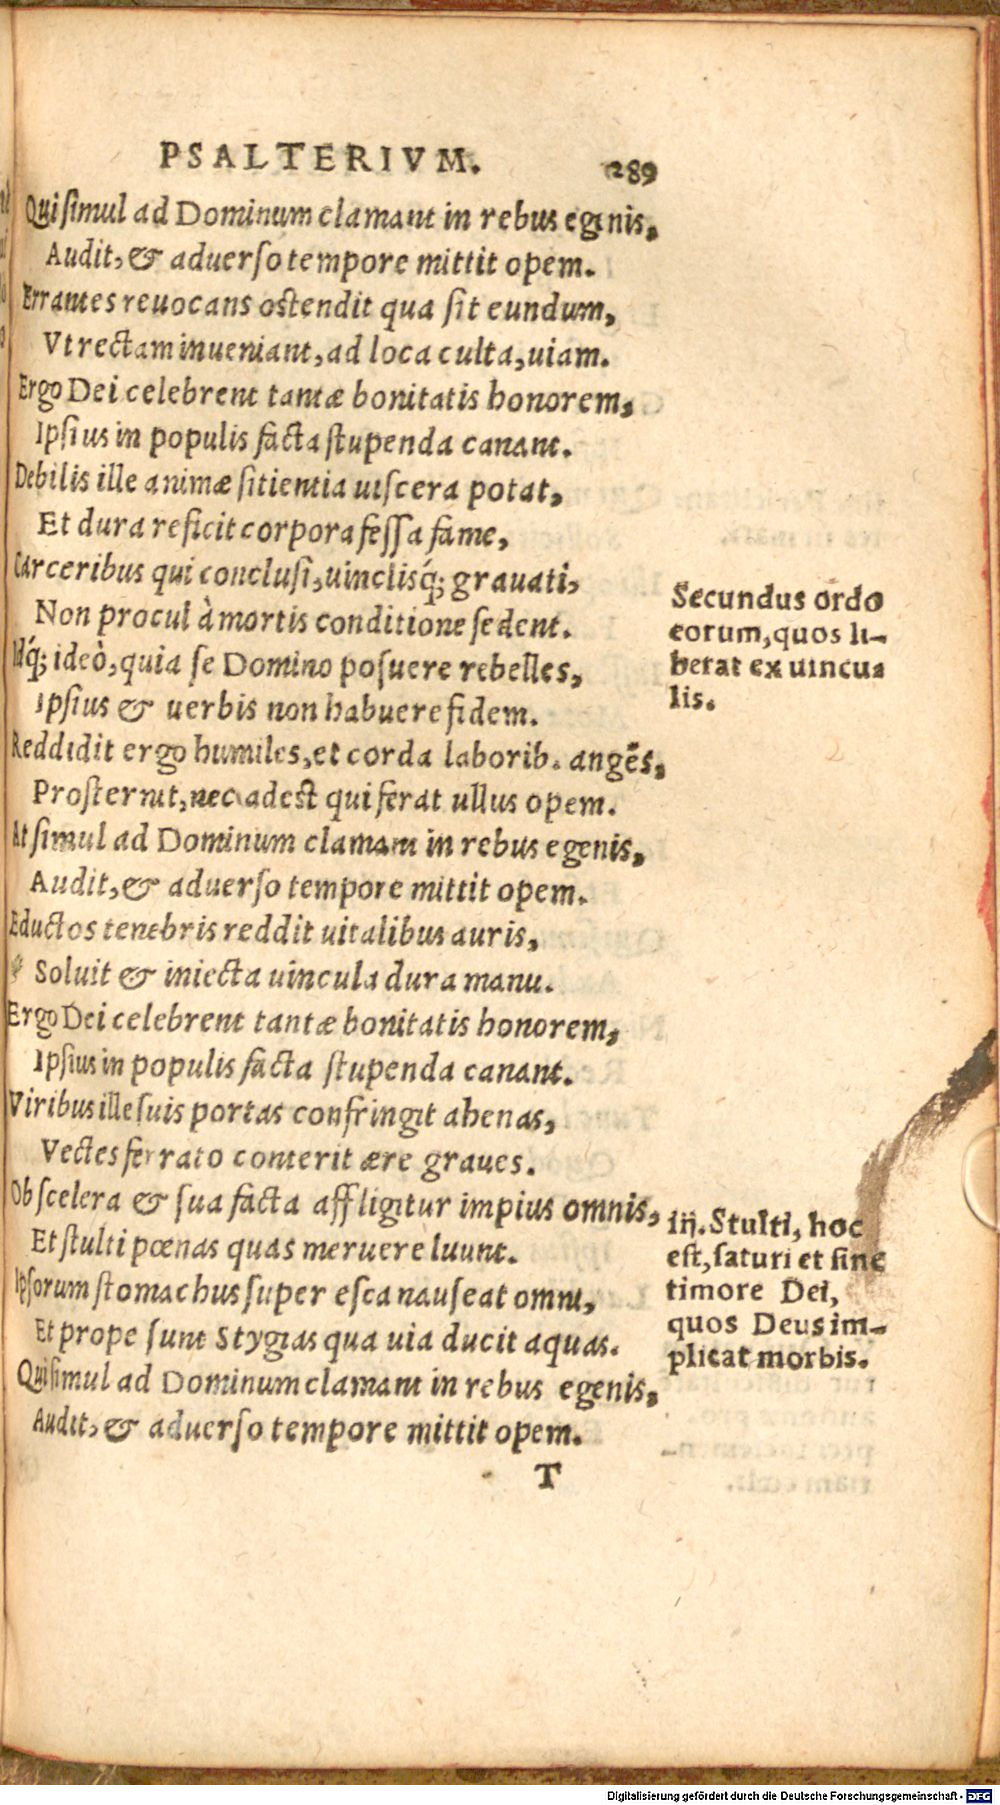 PSALTERIVM. 289
Qui simul ad Dominum clamant in rebus egenis,
Audit, & aduerso tempore mittit opem.
Errantes reuocans ostendit qua sit eundum,
Vt rectam inueniant, ad loca culta, uiam.
Ergo Dei celebrent tantæ bonitatis honorem,
Ipsius in populis facta stupenda canant.
Debilis ille animæ sitientia uiscera potat,
Et dura reficit corpora fessa fame,
Carceribus qui conclusi, uinclisq́; grauati,
Non procul à mortis conditione sedent.
Idq́; ideò, quia se Domino posuere rebelles,
Ipsius & uerbis non habuere fidem.
Reddidit ergo humiles, et corda laborib. angẽs,
Prosternit, nec adest qui ferat ullus opem.
At simul ad Dominum clamant in rebus egenis,
Audit, & aduerso tempore mittit opem.
Eductos tenebris reddit uitalibus auris,
Soluit & iniecta uincula dura manu.
Ergo Dei celebrent tantæ bonitatis honorem,
Ipsius in populis facta stupenda canant.
Viribus ille suis portas confringit ahenas,
Vectes ferrato conterit ære graues.
Ob scelera & sua facta affligitur impius omnis,
Et stulti pœnas quas meruere luunt.
Ipsorum stomachus super esca nauseat omni,
Et prope sunt Stygias qua uia ducit aquas.
Qui simul ad Dominum clamant in rebus egenis,
Audit, & aduerso tempore mittit opem.
T
Secundus ordo
eorum, quos li-
berat ex uincu-
lis.
iij. Stulti, hoc
est, saturi et sine
timore Dei,
quos Deus im-
plicat morbis.
Digitalisierung gefördert durch die Deutsche Forschungsgemeinschaft - DFG